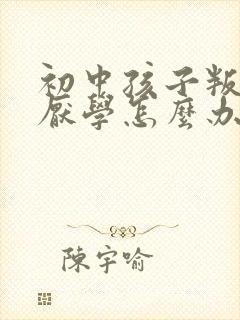 初中孩子叛
厭學怎麼办
陳宇喻